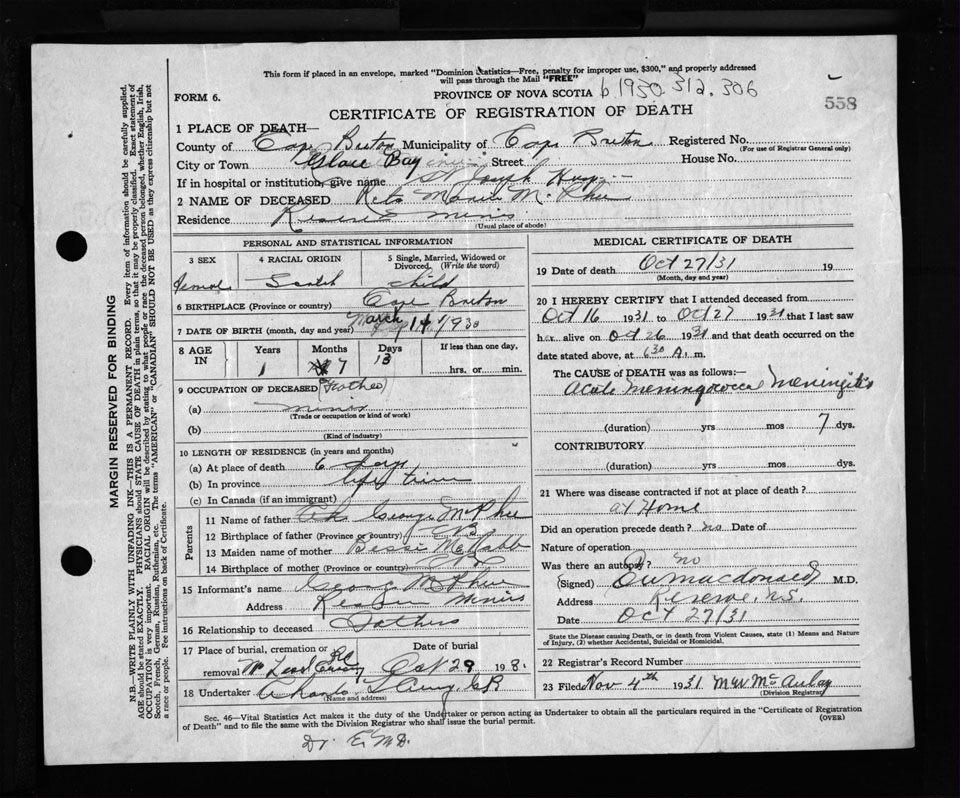 This form if placed in an envelope, marked "Dominion Statistics—Free, penalty for improper use, $300," and properly addressed
will pass through the Mail "FREE"
FORM 6.
PROVINCE OF NOVA SCOTIA b1930 312.306
558
CERTIFICATE OF REGISTRATION OF DEATH
1 PLACE OF DEATH—
County of Cape Breton Municipality of Cape Breton Registered No.
(For use of Registrar General only)
City or Town Glace Bay Street House No.
If in hospital or institution, give name St Joseph Hosp
2 NAME OF DECEASED Marie McPhee
Residence Reserve Mines
(Usual place of abode)
PERSONAL AND STATISTICAL INFORMATION
3 SEX 4 RACIAL ORIGIN 5 Single, Married, Widowed or Divorced. (Write the word)
Female Scotch Child
6 BIRTHPLACE (Province or country) Cape Breton
7 DATE OF BIRTH (month, day and year) March 14 1930
8 AGE IN Years Months Days If less than one day,
1 7 13 hrs. or min.
9 OCCUPATION OF DECEASED (Father)
(a) miner
(Trade or occupation or kind of work)
(b)
(Kind of industry)
10 LENGTH OF RESIDENCE (in years and months)
(a) At place of death 6 days
(b) In province life time
(c) In Canada (if an immigrant)
Parents
11 Name of father George McPhee
12 Birthplace of father (Province or country) CB
13 Maiden name of mother
14 Birthplace of mother (Province or country)
15 Informant's name George McPhee
Address Reserve Mines
16 Relationship to deceased Father
17 Place of burial, cremation or removal Date of burial
Oct 29 193
18 Undertaker
(Name and address)
MEDICAL CERTIFICATE OF DEATH
19 Date of death Oct 27/31 19
(Month, day and year)
20 I HEREBY CERTIFY that I attended deceased from
Oct 16 1931 to Oct 27 1931 that I last saw
her alive on Oct 26 1931 and that death occurred on the
date stated above, at 6 30 A. m.
The CAUSE of DEATH was as follows:
Acute Meningococcal Meningitis
(duration) yrs mos 7 dys.
CONTRIBUTORY
(duration) yrs mos dys.
21 Where was disease contracted if not at place of death?
at Home
Did an operation precede death? no Date of
Nature of operation
Was there an autopsy? no
(Signed) MacDonald M.D.
Address Reserve, N.S.
Date Oct 27/31
State the Disease causing Death, or in death from Violent Causes, state (1) Means and Nature
of Injury, (2) whether Accidental, Suicidal or Homicidal.
22 Registrar's Record Number
23 Filed Nov 4th 1931 M W McAulay
(Division Registrar)
Sec. 46—Vital Statistics Act makes it the duty of the Undertaker or person acting as Undertaker to obtain all the particulars required in the "Certificate of Registration
of Death" and to file the same with the Division Registrar who shall issue the burial permit.
(OVER)
Dr. E. McD.
MARGIN RESERVED FOR BINDING
N.B.—WRITE PLAINLY WITH UNFADING INK—THIS IS A PERMANENT RECORD. Every item of information should be carefully supplied.
AGE should be stated EXACTLY. PHYSICIANS should STATE CAUSE OF DEATH in plain terms, so that it may be properly classified. Exact statement of
OCCUPATION is very important. RACIAL ORIGIN will be described by stating to what people or race the deceased person belonged, whether English, Irish,
Scotch, French, German, Russian, Ruthenian, etc. The terms "AMERICAN" or "CANADIAN" SHOULD NOT BE USED as they express citizenship but not
a race or people. See instructions on back of Certificate.